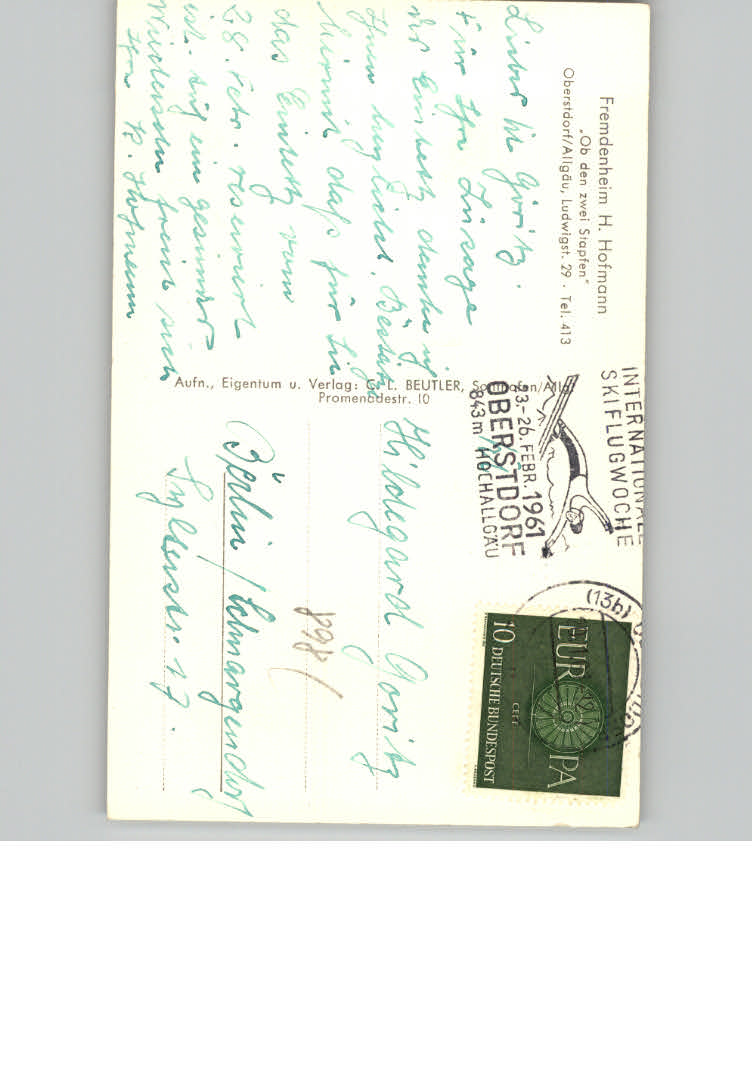 Fremdenheim H. Hofmann
„Ob den zwei Stapfen"
Oberstdorf/Allgäu, Ludwigst. 29 · Tel. 413
Liebes Frl. Göritz.
Für Ihre Zusage
des Einsetz danke ich
Ihnen herzlichst. Bestätige
hiermit daß für Sie
das Einbettz. vom
28. Febr. reserviert
ist. Auf ein gesundes
Wiedersehn freut sich
Ihre B. Hofmann
Aufn., Eigentum u. Verlag: C. L. BEUTLER, Sonthofen/Allg.
Promenadestr. 10
INTERNATIONALE
SKIFLUGWOCHE
23.-26. FEBR. 1961
OBERSTDORF
843 m HOCHALLGÄU
(13b)
EUROPA
CEPT
10 DEUTSCHE BUNDESPOST
Hildegard Göritz
898/
Berlin / Schmargendorf
Sylterstr. 17.